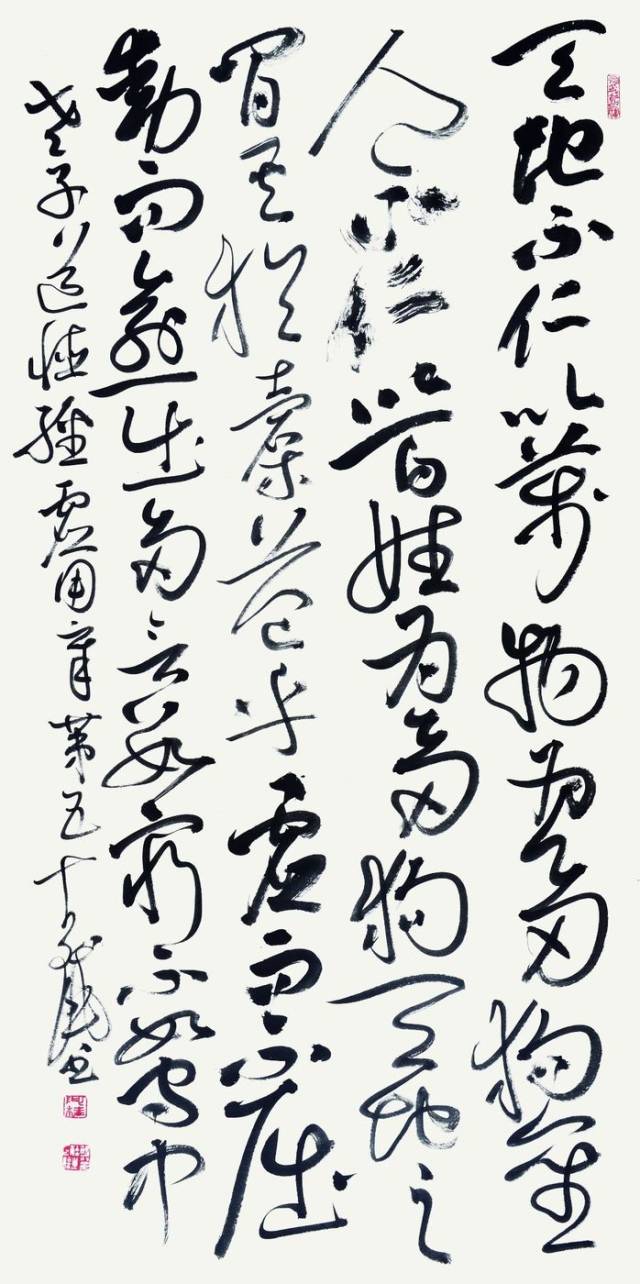 天地不仁以萬物為芻狗聖
人不仁以百姓為芻狗天地之
間其猶橐籥乎虛而不屈
動而愈出多言數窮不如守中
老子道德經虛用章第五